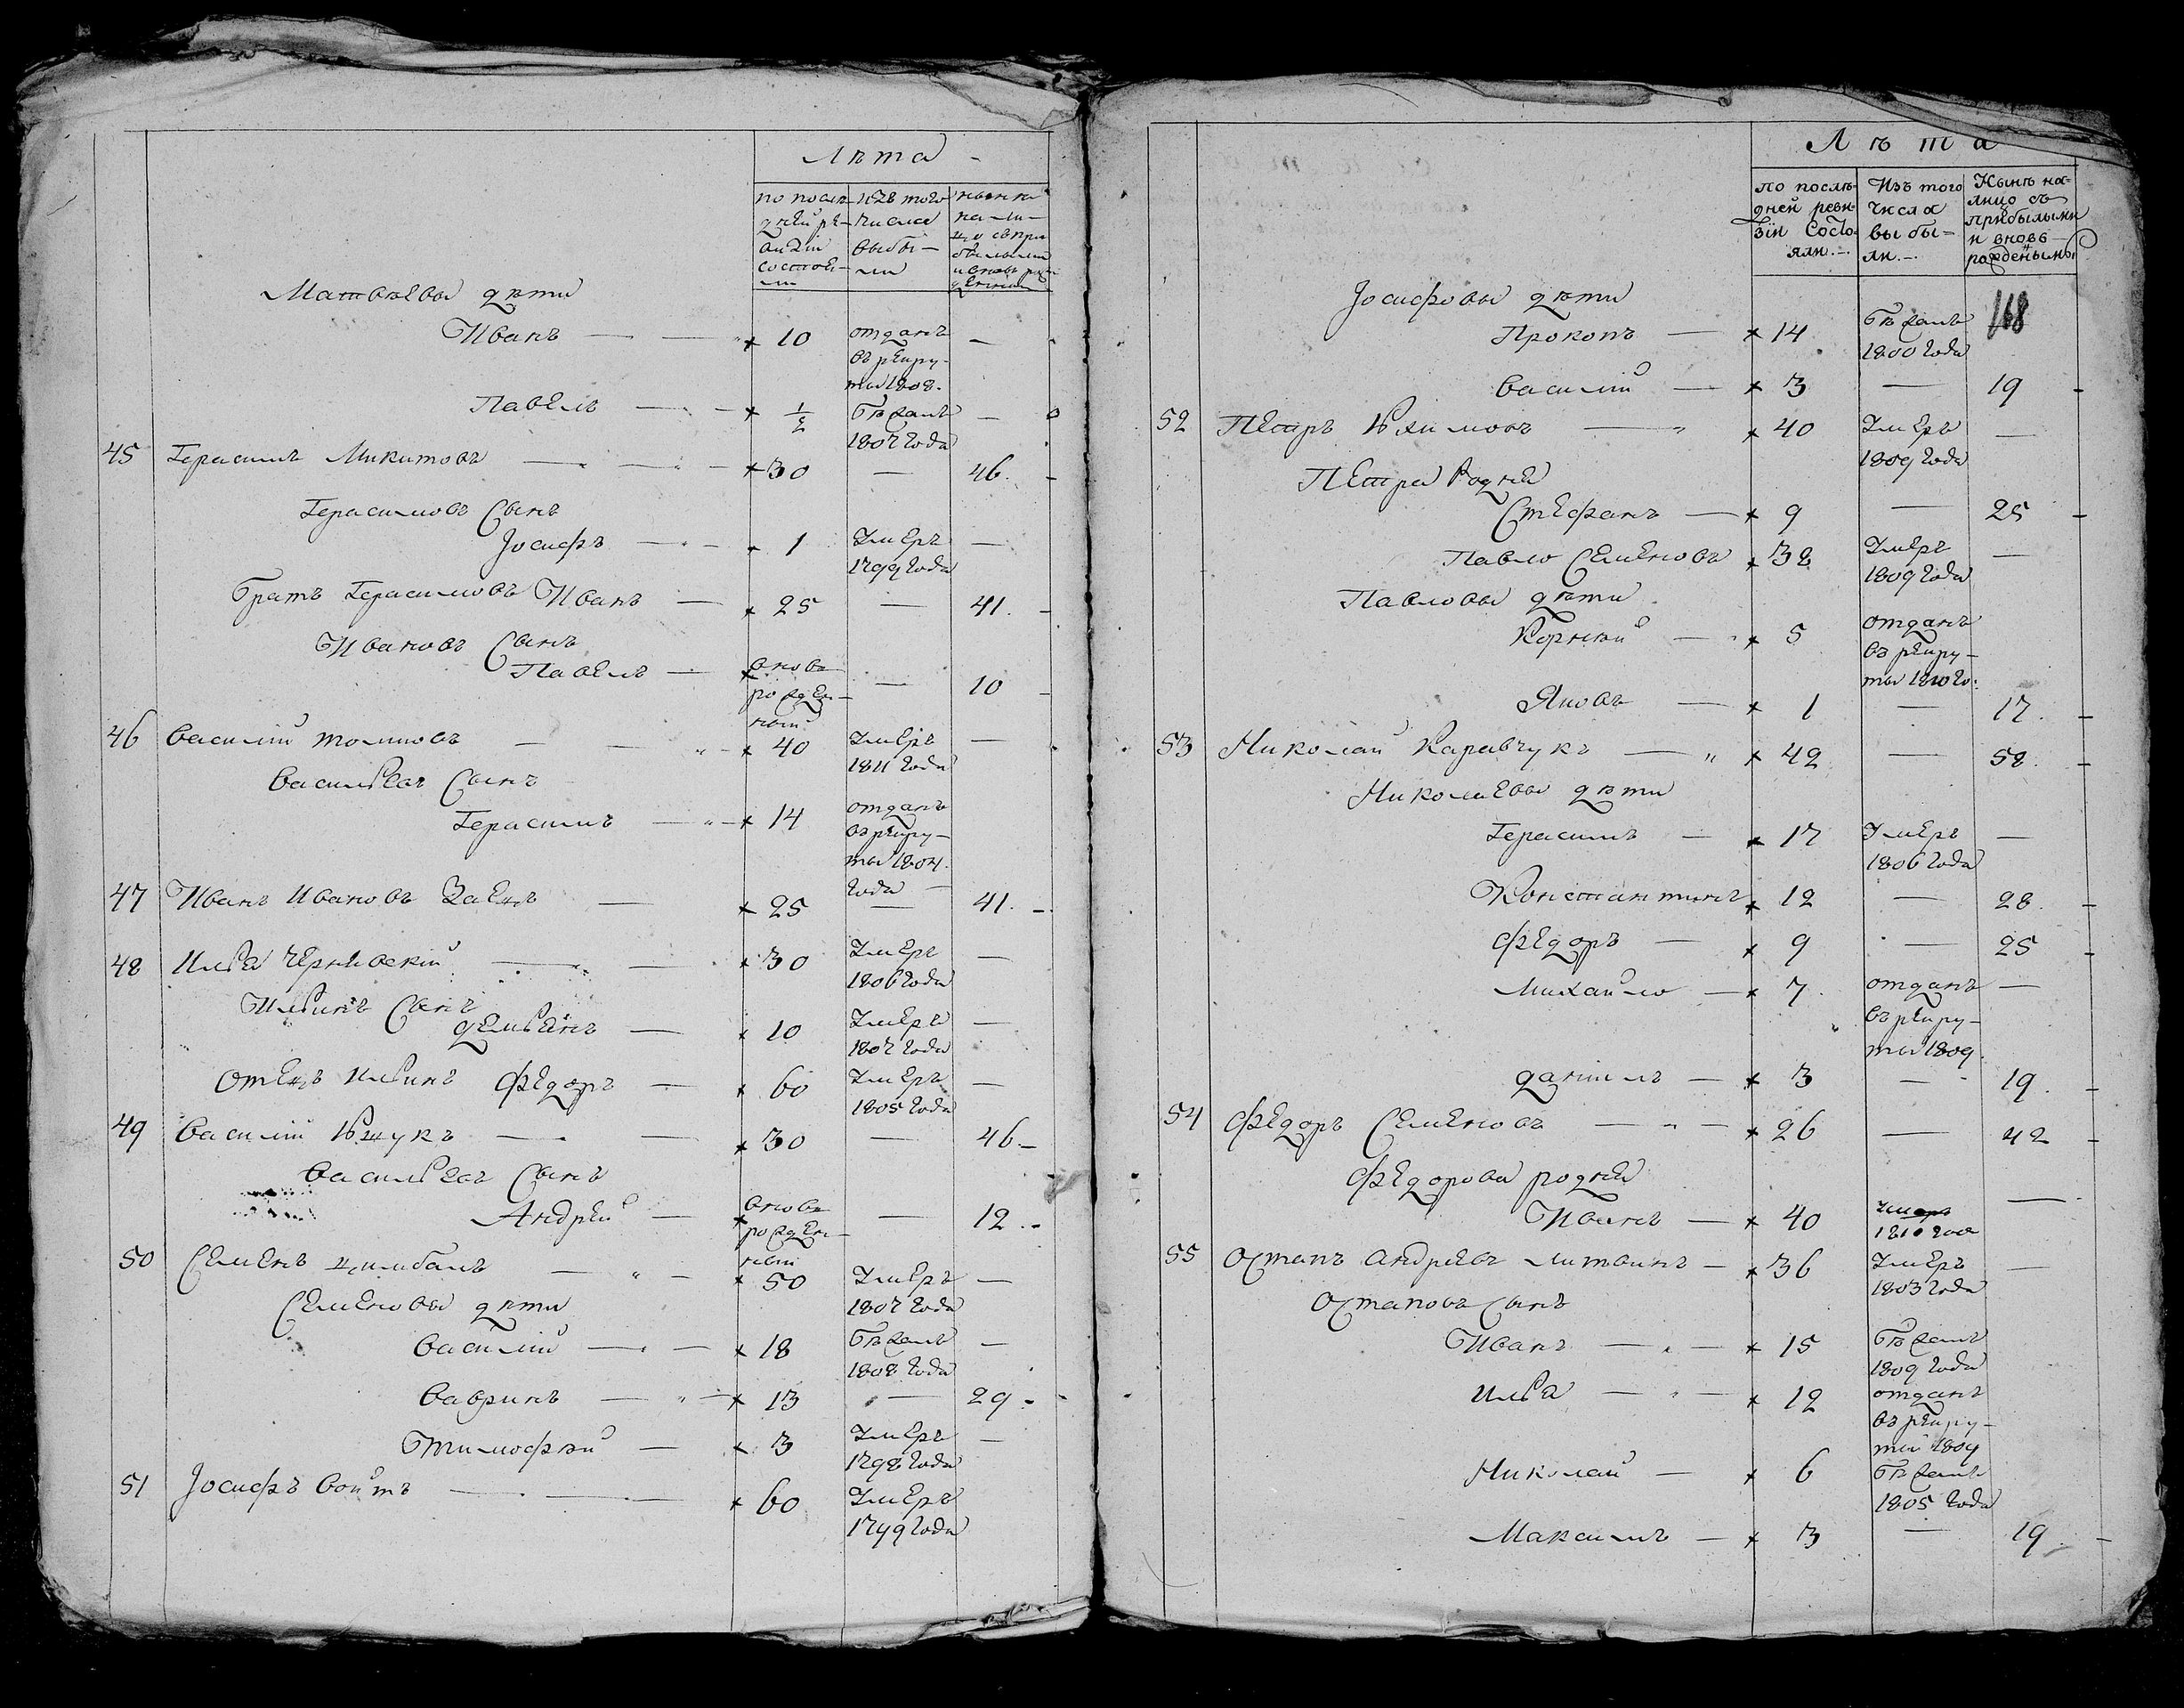 Лѣта
по послѣ- изъ того нынѣ
дней ре- числа на ли-
визіи выбы- цо съ при
состоя- ли былыми
ли и вновь рож
денными
Матвѣевы дѣти
Иванъ — 10 отданъ —
въ рекру-
ты 1808.
Павелъ — 1/2 бѣжалъ —
1807 года
45 Герасимъ Микитовъ — 30 — 46.
Герасимовъ Сынъ
Іосифъ — 1 Умеръ —
1799 года
братъ Герасимовъ Иванъ — 25 — 41.
Ивановъ Сынъ
Павелъ — вновь — 10
рожден-
ный
46 Василій толиновъ — 40 Умеръ —
1811 года
Васильевъ Сынъ
Герасимъ — 14 отданъ
въ рекру-
ты 1804.
года
47 Иванъ Ивановъ Заецъ — 25 — 41.
48 Илья Чернявскій — 30 Умеръ —
1806 года
Ильинъ Сынъ
демьянъ — 10 Умеръ —
1807 года
отецъ Ильинъ Федоръ — 60 Умеръ —
1805 года
49 Василій — 30 — 46
Васильевъ Сынъ
Андрей — вновь — 12
рожден-
ный
50 Семенъ цимбалъ — 50 Умеръ —
1807 года
Семеновы дѣти
Василій — 18 бѣжалъ —
1808 года
Гавринъ — 13 — 29
Тимофѣй — 3 Умеръ —
1798 года
51 Іосифъ Войтъ — 60 Умеръ
1799 года
Лѣта
по послѣ- Изъ того Нынѣ на-
дней реви- числа лицо съ
зіи Состо- выбы- прибылыми
яли. ли. и вновь
рожденными
168
Іосифовы дѣти
Прокопъ — 14 бѣжалъ
1800 года
Василій — 3 — 19
52 Петръ Климовъ — 40 Умеръ —
1809 года
Петра Родня
Стефанъ — 9 — 25
Павло Семеновъ 38 Умеръ —
1809 года
Павловы дѣти
Корнѣй — 5 отданъ
въ рекру-
ты 1810 го:
Яковъ — 1 — 17.
53 Николай Каравчукъ — 42 — 58.
Николаевы дѣти
Герасимъ — 17 Умеръ —
1806 года
Константинъ 12 — 28.
Федоръ — 9 — 25
Михайло — 7 отданъ —
въ рекру-
ты 1809.
данилъ — 3 — 19.
54 Федоръ Семеновъ — 26 — 42
Федорова родня
Иванъ — 40 умеръ —
1810 года
55 Остапъ Андреевъ литвинъ — 36 Умеръ —
1803 года
Остаповъ Сынъ
Иванъ — 15 бѣжалъ
1809 года
Илья — 12 отданъ
въ рекру-
ты 1809
Николай — 6 бѣжалъ
1805 года
Максимъ — 3 — 19.